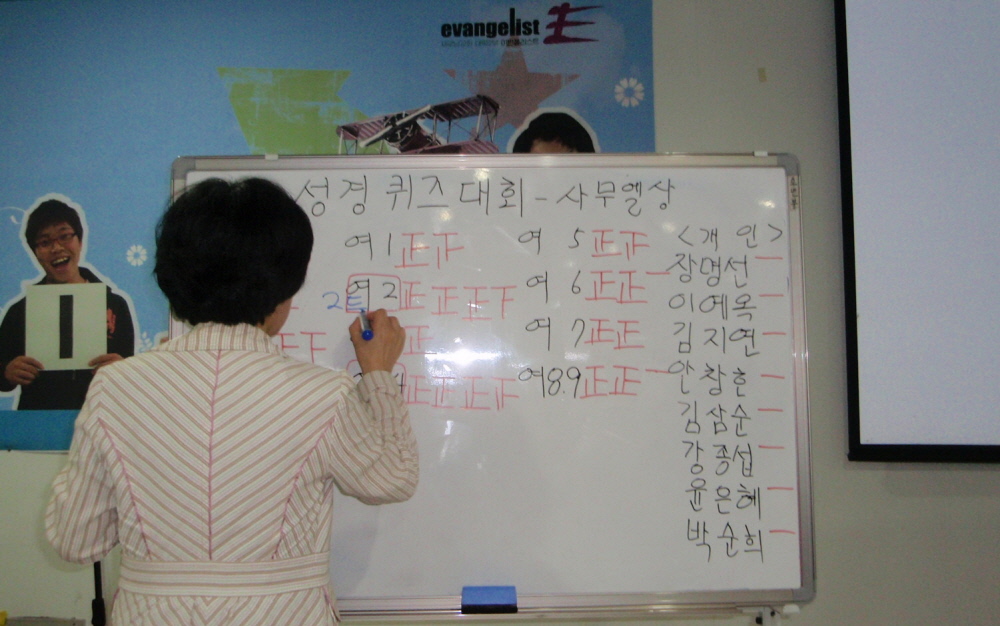 evangelist
성경 퀴즈대회-사무엘상
여 1 正正
여 2 正正正下
2등
正
正正正下
여 5 正正
여 6 正正一
여 7 正正
여8.9 正正一
<개 인>
장명선 一
이예옥 一
김지연 一
안창흔 一
김삼순 一
강종섭 一
윤은혜 一
박순희 一